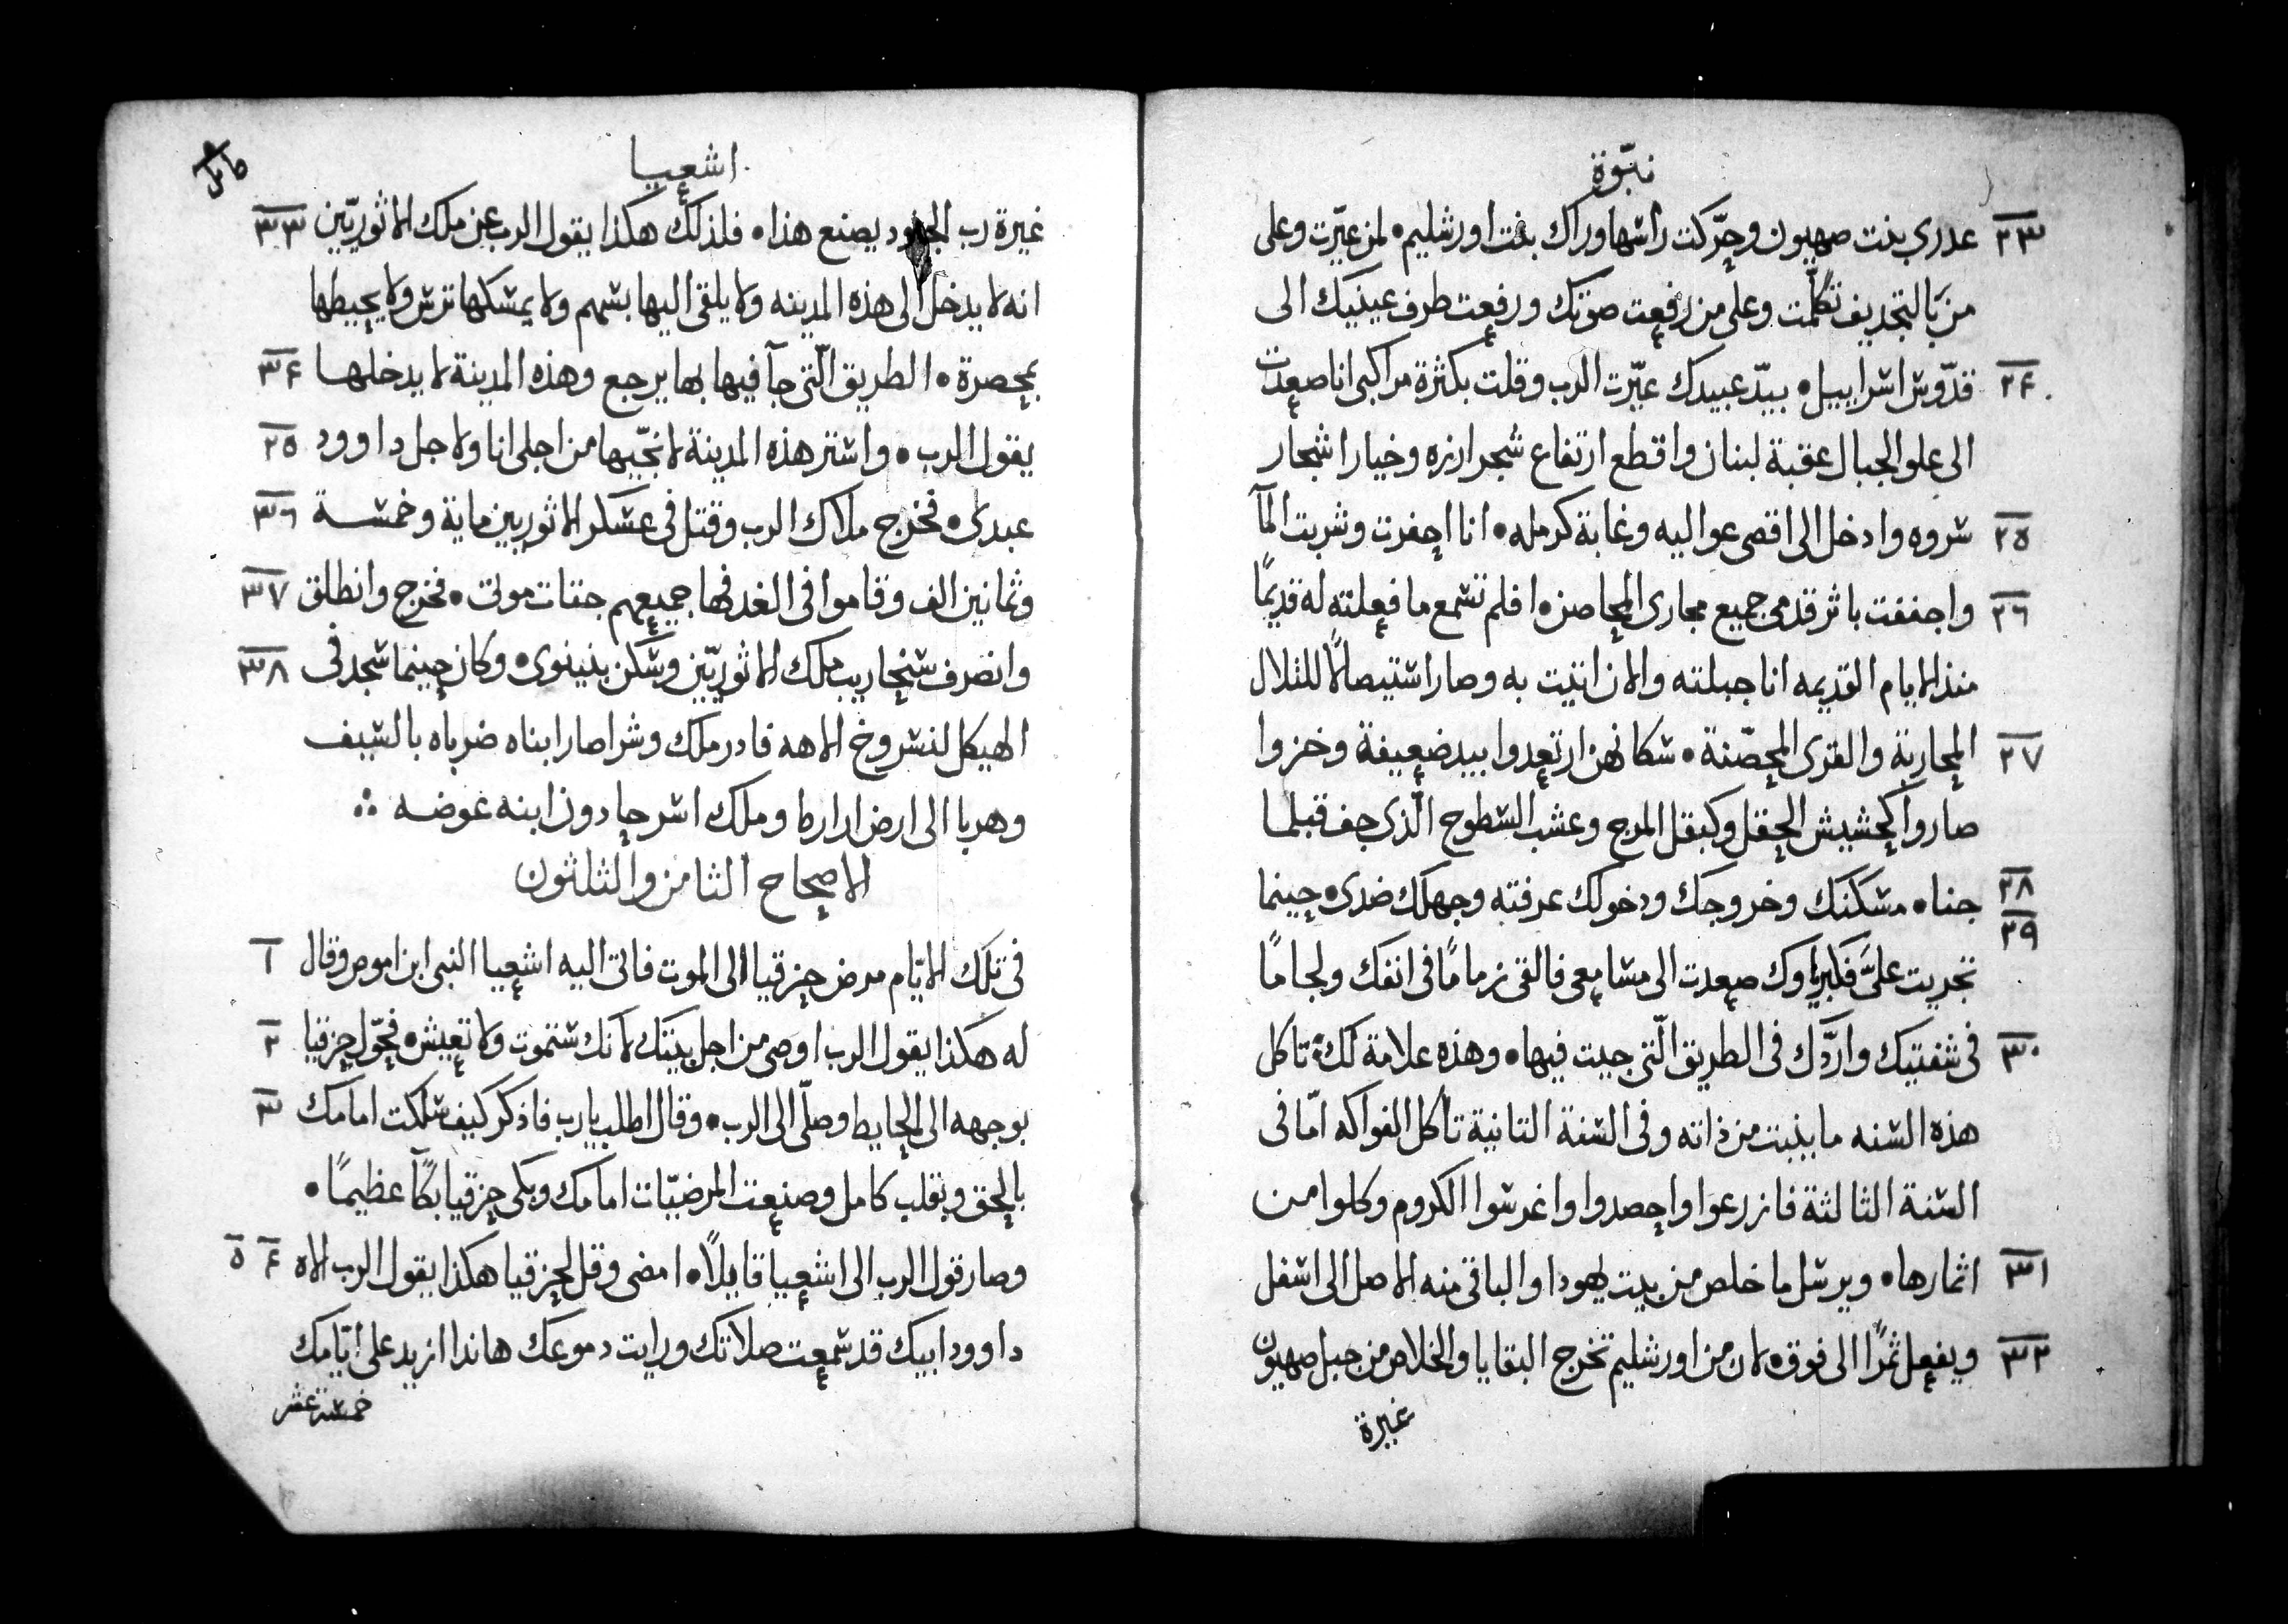 نبّوة
٢٣ عدرى بنت صهيون وحرّكت راسها وراك بنت اورشليم • لمن عيّرت وعلى
من بالتجديف تكلّمت وعلى من رفعت صوتك ورفعت طرف عينيك الى
٢٤ قدّوس اسراييل • بيدّ عبيدك عيّرت الرب وقلت بكثرة مراكبى انا صعدت
الى علو الجبال عقبة لبنان واقطع ارتفاع شجر ارزه وخيار اشجار
٢٥ سروه وادخل الى اقصى عواليه وغابة كرمله • انا احفرت وشربت المآ
٢٦ واجففت باثر قدمى جميع مجارى المحاصن • افلم تسمع ما فعلته له قديمًا
منذ الايام القديمه انا جبلته والان اتيت به وصار استيصالًا للتلال
٢٧ المحاربة والقرى المحصّنة • سكانهن ارتعدوا بيد ضعيفة وخزوا
صاروا كحشيش الحقل وكبقل المرج وعشب السطوح الّذى جف قبلما
٢٨ جنا • مسكنك وخروجك ودخولك عرفته وجهلك ضدى • حينما
٢٩
تجريت علىَّ فكبرياوك صعدت الى مسامعى فالقى زمامًا فى انفك ولجامًا
٣٠ فى شفتيك واردّك فى الطريق الّتى جيت فيها • وهذه علامة لك • تاكل
هذه السنه ما ينبت من ذاته وفى السنة التانية تاكل الفواكه امّا فى
السنة الثالثة فازرعوا واحصدوا واغرسوا الكروم وكلوا من
٣١ اثمارها • ويرسل ما خلص من بيت يهودا والباقى منه الاصل الى اسفل
٣٢ ويفعل ثمرًا الى فوق • لان من اورشليم تخرج البقايا والخلاص من جبل صهيون
غيرة
اشعيا
غيرة رب الجنود يصنع هذا • فلذلك هكذا يقول الرب عن ملك الاثوريّين ٣٣
انه لا يدخل الى هذه المدينه ولا يلقى اليها بسهم ولا يمسكها ترس ولا يحيطها
بمحصرة • الطريق الّتى جآ فيها بها يرجع وهذه المدينة لا يدخلها ٣٤
يقول الرب • واستر هذه المدينة لانجّيها من اجلى انا ولاجل داوود ٣٥
عبدى • فخرج ملاك الرب وقتل فى عسكر الاثوريين ماية وخمسة ٣٦
وثمانين الف وقاموا فى الغد فها جميعهم جتات موتى • فخرج وانطلق ٣٧
وانصرف سنحاريب ملك الاثوريّين وسكن بنينوى • وكان حينما سجد فى ٣٨
الهيكل لنسروخ الاهه فادرملك وشراصار ابناه ضرباه بالسيف
وهربا الى ارض اراراط وملك اسرحادون ابنه عوضه
الاصحاح الثامن والثلثون
فى تلك الايّام مرض حزقيا الى الموت فاتى اليه اشعيا النبى ابن اموص وقال ١
له هكذا يقول الرب اوصى من اجل بيتك لانك ستموت ولا تعيش • فحوّل حزقيا ٢
بوجهه الى الحايط وصلّى الى الرب • وقال اطلب يارب فاذكر كيف سلكت امامك ٣
بالحق وبقلب كامل وصنعت المرضيّات امامك وبكى حزقيا بكآ عظيمًا •
وصار قول الرب الى اشعيا قايلًا • امضى وقل لحزقيا هكذا يقول الرب الاه ٤ ٥
داوود ابيك قد سمعت صلاتك ورايت دموعك هاندا ازيد على ايّامك
خمسة عشر